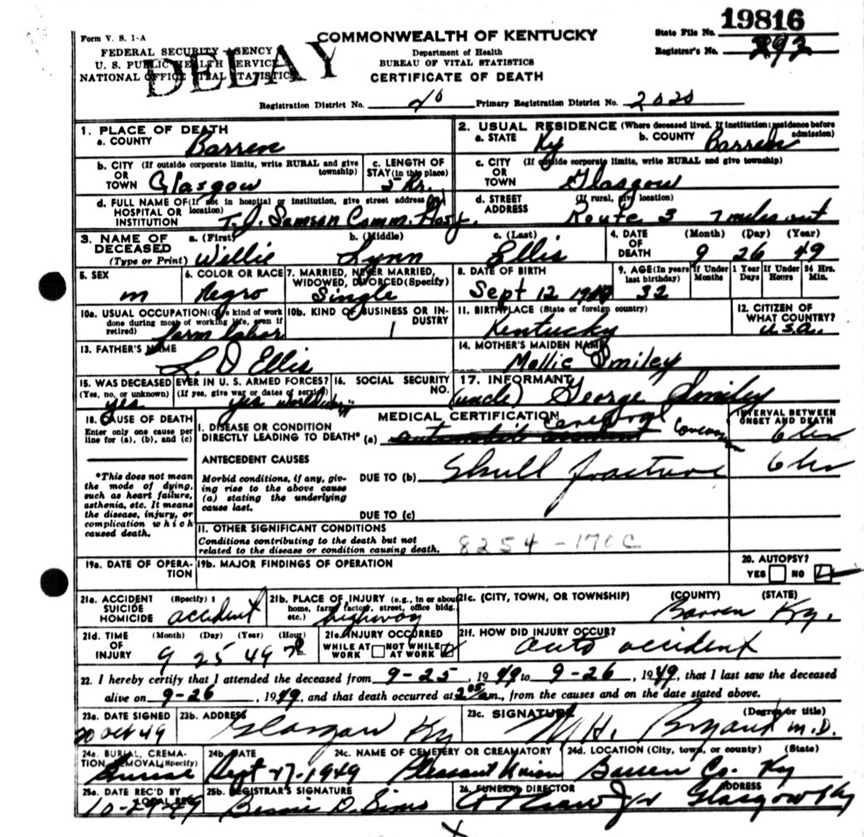 19816
Form V. S. 1-A
COMMONWEALTH OF KENTUCKY
State File No.
FEDERAL SECURITY AGENCY
Department of Health
Registrar's No. 292
U. S. PUBLIC HEALTH SERVICE
BUREAU OF VITAL STATISTICS
NATIONAL OFFICE VITAL STATISTICS
DELAY
CERTIFICATE OF DEATH
Registration District No. Primary Registration District No. 2020
1. PLACE OF DEATH
a. COUNTY Barren
2. USUAL RESIDENCE (Where deceased lived. If institution: residence before admission)
a. STATE Ky b. COUNTY Barren
b. CITY (If outside corporate limits, write RURAL and give township)
OR
TOWN Glasgow
c. LENGTH OF
STAY (in this place)
5 hr.
c. CITY (If outside corporate limits, write RURAL and give township)
OR
TOWN Glasgow
d. FULL NAME OF (If not in hospital or institution, give street address or location)
HOSPITAL OR
INSTITUTION T. J. Samson Comm. Hosp.
d. STREET (If rural, give location)
ADDRESS Route 3 7 miles out
3. NAME OF DECEASED
(Type or Print)
a. (First) Willie
b. (Middle) Lynn
c. (Last) Ellis
4. DATE OF DEATH (Month) (Day) (Year)
9 26 49
5. SEX
m
6. COLOR OR RACE
Negro
7. MARRIED, NEVER MARRIED, WIDOWED, DIVORCED (Specify)
Single
8. DATE OF BIRTH
Sept 12
9. AGE (In years last birthday) If Under 1 Year Months Days If Under 24 Hrs. Hours Min.
32
10a. USUAL OCCUPATION (Give kind of work done during most of working life, even if retired)
farm labor
10b. KIND OF BUSINESS OR INDUSTRY
11. BIRTHPLACE (State or foreign country)
Kentucky
12. CITIZEN OF WHAT COUNTRY?
U.S.A.
13. FATHER'S NAME
L. D Ellis
14. MOTHER'S MAIDEN NAME
Mollie Smiley
15. WAS DECEASED EVER IN U. S. ARMED FORCES?
(Yes, no, or unknown) (If yes, give war or dates of service)
yes yes
16. SOCIAL SECURITY NO.
17. INFORMANT
(uncle) George Smiley
18. CAUSE OF DEATH
Enter only one cause per line for (a), (b), and (c)
MEDICAL CERTIFICATION
INTERVAL BETWEEN ONSET AND DEATH
I. DISEASE OR CONDITION
DIRECTLY LEADING TO DEATH* (a) automobile accident Cerebral
6 hr
*This does not mean the mode of dying, such as heart failure, asthenia, etc. It means the disease, injury, or complication which caused death.
ANTECEDENT CAUSES
Morbid conditions, if any, giving rise to the above cause (a) stating the underlying cause last.
DUE TO (b) Skull fracture
6 hr
DUE TO (c)
II. OTHER SIGNIFICANT CONDITIONS
Conditions contributing to the death but not related to the disease or condition causing death.
8254-170C
19a. DATE OF OPERATION
19b. MAJOR FINDINGS OF OPERATION
20. AUTOPSY?
YES NO
21a. ACCIDENT (Specify)
SUICIDE
HOMICIDE accident
21b. PLACE OF INJURY (e.g., in or about home, farm, factory, street, office bldg., etc.)
highway
21c. (CITY, TOWN, OR TOWNSHIP) (COUNTY) (STATE)
Barren Ky.
21d. TIME OF INJURY (Month) (Day) (Year) (Hour)
9 25 49 m.
21e. INJURY OCCURRED
WHILE AT WORK NOT WHILE AT WORK
21f. HOW DID INJURY OCCUR?
auto accident
22. I hereby certify that I attended the deceased from 9-25, 1949 to 9-26, 1949, that I last saw the deceased
alive on 9-26, 1949, and that death occurred at 2 05 am., from the causes and on the date stated above.
23a. DATE SIGNED
Oct 49
23b. ADDRESS
Glasgow Ky
23c. SIGNATURE (Degree or title)
M. H. Bryant M.D.
24a. BURIAL, CREMATION, REMOVAL (Specify)
Burial
24b. DATE
Sept 27-1949
24c. NAME OF CEMETERY OR CREAMATORY
Pleasant Union
24d. LOCATION (City, town, or county) (State)
Barren Co. Ky
25a. DATE REC'D BY LOCAL REG.
25b. REGISTRAR'S SIGNATURE
Bessie D. Sims
26. FUNERAL DIRECTOR ADDRESS
Glasgow Ky